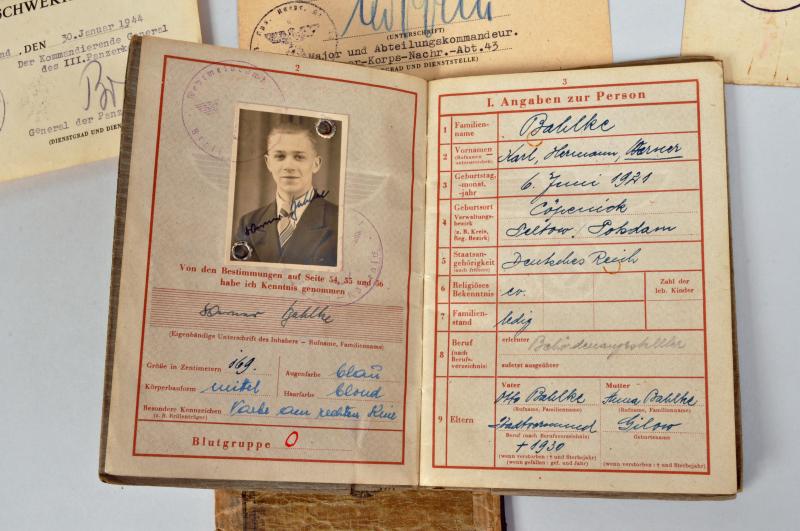 SCHWERT
, DEN 30.Januar 1944
Der Kommandierende General
des III.Panzerk
General der Panz
(DIENSTGRAD UND
(UNTERSCHRIFT)
Major und Abteilungskommandeur.
er-Korps-Nachr.-Abt.43
(DIENSTGRAD UND DIENSTSTELLE)
2
Wehrmeldeamt
Werner Bahlke
Von den Bestimmungen auf Seite 54, 55 und 56
habe ich Kenntnis genommen
Werner Bahlke
(Eigenhändige Unterschrift des Inhabers – Rufname, Familienname)
Größe in Zentimetern 169 Augenfarbe blau
Körperbauform mittel Haarfarbe blond
Besondere Kennzeichen Narbe am rechten Knie
(z. B. Brillenträger)
Blutgruppe O
3
I. Angaben zur Person
1 Familien-name Bahlke
2 Vornamen (Rufnamen unterstreichen) Karl, Hermann, Werner
3 Geburtstag, -monat, -jahr 6. Juni 1921
4 Geburtsort Verwaltungsbezirk (z. B. Kreis, Reg. Bezirk) Cöpenick
Teltow/Potsdam
5 Staatsan-gehörigkeit (auch frühere) Deutsches Reich
6 Religiöses Bekenntnis ev. Zahl der leb. Kinder
7 Familien-stand ledig
8 Beruf (nach Berufs-verzeichnis) erlernter Behördenangestellter
zuletzt ausgeübter
9 Eltern
Vater Mutter
Otto Bahlke Bahlke
(Rufname, Familienname) (Rufname, Familienname)
Gilow
Beruf (nach Berufsverzeichnis) Geburtsname
+ 1930
(wenn verstorben: † und Sterbejahr)
(wenn gefallen: gef. und Jahr) (wenn verstorben: † und Sterbejahr)